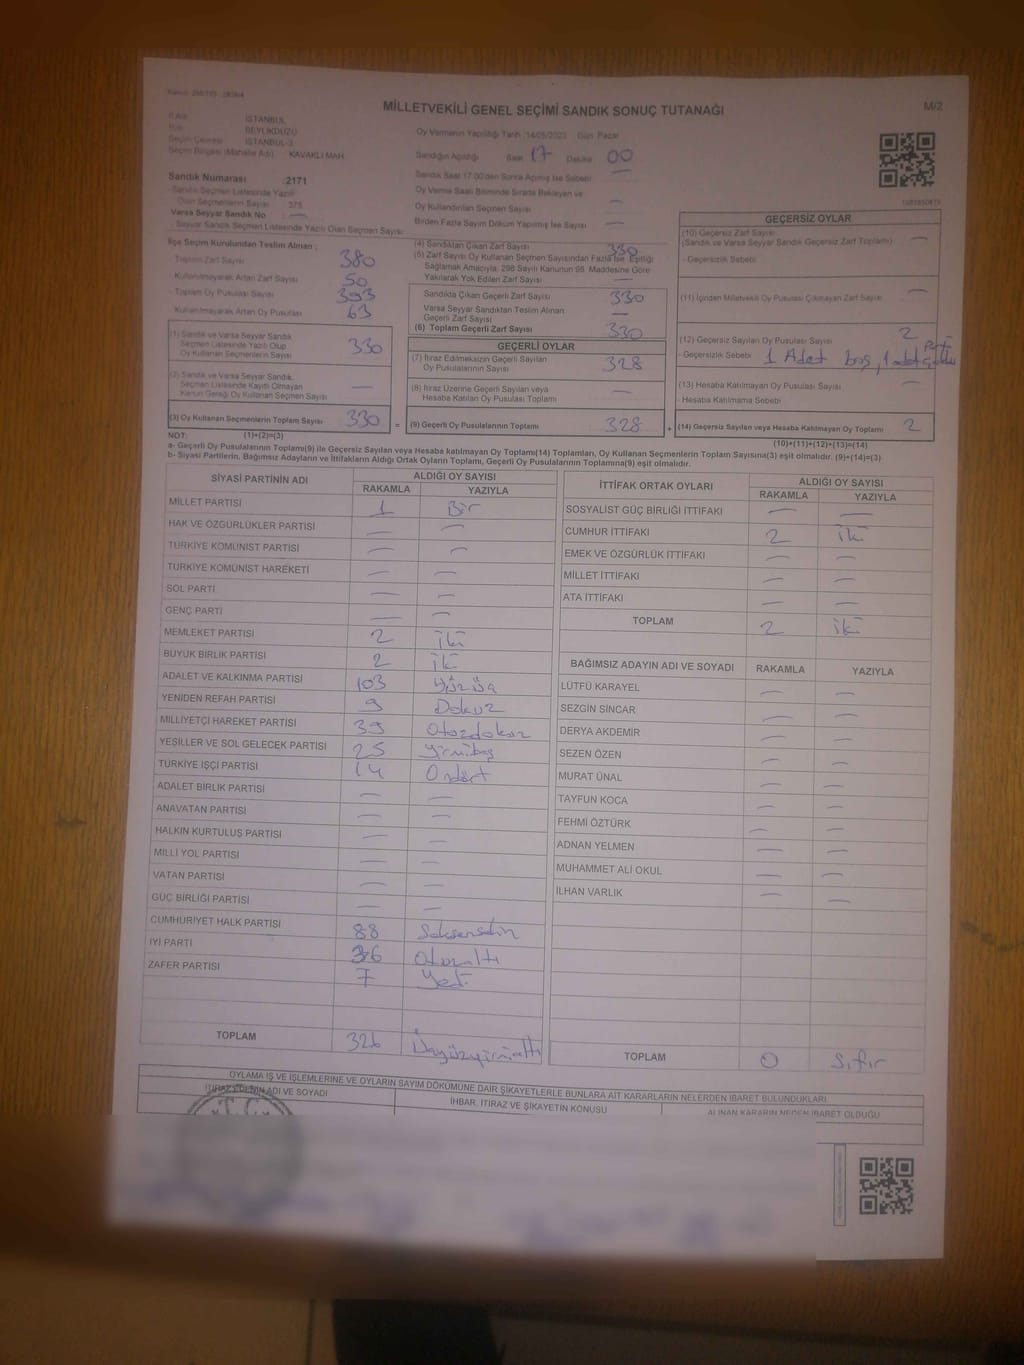 MİLLETVEKİLİ GENEL SEÇİMİ SANDIK SONUÇ TUTANAĞI
M/2
İl Adı İSTANBUL
İlçe BEYLİKDÜZÜ
Seçim Çevresi İSTANBUL-3
Seçim Bölgesi (Mahalle Adı) KAVAKLI MAH.
Oy Vermenin Yapıldığı Tarih :14/05/2023 Gün: Pazar
Sandığın Açıldığı Saat 17 Dakika 00
Sandık Saat 17:00'den Sonra Açılmış İse Sebebi —
Oy Verme Saati Bitiminde Sırada Bekleyen ve
Oy Kullandırılan Seçmen Sayısı —
Birden Fazla Sayım Döküm Yapılmış İse Sayısı —
Sandık Numarası :2171
- Sandık Seçmen Listesinde Yazılı
Olan Seçmenlerin Sayısı 375
Varsa Seyyar Sandık No —
- Seyyar Sandık Seçmen Listesinde Yazılı Olan Seçmen Sayısı
İlçe Seçim Kurulundan Teslim Alınan ;
- Toplam Zarf Sayısı 380
- Kullanılmayarak Artan Zarf Sayısı 50
- Toplam Oy Pusulası Sayısı 393
- Kullanılmayarak Artan Oy Pusulası 63
(1) Sandık ve Varsa Seyyar Sandık
Seçmen Listesinde Yazılı Olup
Oy Kullanan Seçmenlerin Sayısı 330
(2) Sandık ve Varsa Seyyar Sandık
Seçmen Listesinde Kaydı Olmayan
Kanun Gereği Oy Kullanan Seçmen Sayısı —
(3) Oy Kullanan Seçmenlerin Toplam Sayısı 330
(4) Sandıktan Çıkan Zarf Sayısı 330
(5) Zarf Sayısı Oy Kullanan Seçmen Sayısından Fazla İse, Eşitliği
Sağlamak Amacıyla; 298 Sayılı Kanunun 98. Maddesine Göre
Yakılarak Yok Edilen Zarf Sayısı
Sandıkta Çıkan Geçerli Zarf Sayısı 330
Varsa Seyyar Sandıktan Teslim Alınan
Geçerli Zarf Sayısı —
(6) Toplam Geçerli Zarf Sayısı 330
GEÇERLİ OYLAR
(7) İtiraz Edilmeksizin Geçerli Sayılan
Oy Pusulalarının Sayısı 328
(8) İtiraz Üzerine Geçerli Sayılan veya
Hesaba Katılan Oy Pusulası Toplamı —
= (9) Geçerli Oy Pusulalarının Toplamı 328 +
GEÇERSİZ OYLAR
(10) Geçersiz Zarf Sayısı
(Sandık ve Varsa Seyyar Sandık Geçersiz Zarf Toplamı) —
- Geçersizlik Sebebi
(11) İçinden Milletvekili Oy Pusulası Çıkmayan Zarf Sayısı —
(12) Geçersiz Sayılan Oy Pusulası Sayısı 2
- Geçersizlik Sebebi 1 Adet boş, 1 adet
(13) Hesaba Katılmayan Oy Pusulası Sayısı —
- Hesaba Katılmama Sebebi
(14) Geçersiz Sayılan veya Hesaba Katılmayan Oy Toplamı 2
NOT: (1)+(2)=(3)
(10)+(11)+(12)+(13)=(14)
a- Geçerli Oy Pusulalarının Toplamı(9) ile Geçersiz Sayılan veya Hesaba katılmayan Oy Toplamı(14) Toplamları, Oy Kullanan Seçmenlerin Toplam Sayısına(3) eşit olmalıdır. (9)+(14)=(3)
b- Siyasi Partilerin, Bağımsız Adayların ve İttifakların Aldığı Ortak Oyların Toplamı, Geçerli Oy Pusulalarının Toplamına(9) eşit olmalıdır.
SİYASİ PARTİNİN ADI ALDIĞI OY SAYISI
RAKAMLA YAZIYLA
MİLLET PARTİSİ 1 Bir
HAK VE ÖZGÜRLÜKLER PARTİSİ — —
TÜRKİYE KOMÜNİST PARTİSİ — —
TÜRKİYE KOMÜNİST HAREKETİ — —
SOL PARTİ — —
GENÇ PARTİ — —
MEMLEKET PARTİSİ 2 İki
BÜYÜK BİRLİK PARTİSİ 2 İki
ADALET VE KALKINMA PARTİSİ 103 Yüzüç
YENİDEN REFAH PARTİSİ 9 Dokuz
MİLLİYETÇİ HAREKET PARTİSİ 39 Otuzdokuz
YEŞİLLER VE SOL GELECEK PARTİSİ 25 Yirmibeş
TÜRKİYE İŞÇİ PARTİSİ 14 Ondört
ADALET BİRLİK PARTİSİ — —
ANAVATAN PARTİSİ — —
HALKIN KURTULUŞ PARTİSİ —
MİLLİ YOL PARTİSİ — —
VATAN PARTİSİ — —
GÜÇ BİRLİĞİ PARTİSİ — —
CUMHURİYET HALK PARTİSİ 88 Seksensekiz
İYİ PARTİ 36 Otuzaltı
ZAFER PARTİSİ 7 Yedi
TOPLAM 326 Üçyüzyirmialtı
İTTİFAK ORTAK OYLARI ALDIĞI OY SAYISI
RAKAMLA YAZIYLA
SOSYALİST GÜÇ BİRLİĞİ İTTİFAKI — —
CUMHUR İTTİFAKI 2 İki
EMEK VE ÖZGÜRLÜK İTTİFAKI — —
MİLLET İTTİFAKI — —
ATA İTTİFAKI — —
TOPLAM 2 İki
BAĞIMSIZ ADAYIN ADI VE SOYADI RAKAMLA YAZIYLA
LÜTFÜ KARAYEL — —
SEZGİN SİNCAR — —
DERYA AKDEMİR — —
SEZEN ÖZEN — —
MURAT ÜNAL — —
TAYFUN KOCA — —
FEHMİ ÖZTÜRK — —
ADNAN YELMEN — —
MUHAMMET ALİ OKUL — —
İLHAN VARLIK — —
TOPLAM 0 Sıfır
OYLAMA İŞ VE İŞLEMLERİNE VE OYLARIN SAYIM DÖKÜMÜNE DAİR ŞİKAYETLERLE BUNLARA AİT KARARLARIN NELERDEN İBARET BULUNDUKLARI
İTİRAZ EDENİN ADI VE SOYADI İHBAR, İTİRAZ VE ŞİKAYETİN KONUSU ALINAN KARARIN NEDEN İBARET OLDUĞU